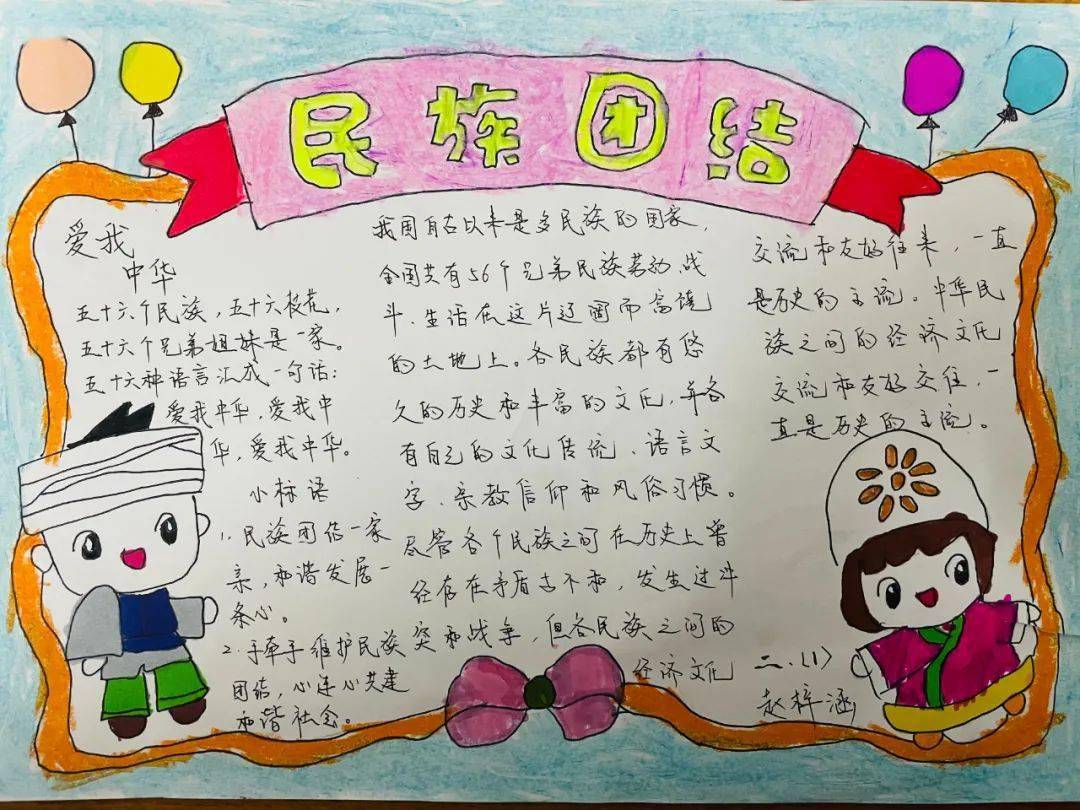 民族团结
爱我
中华
五十六个民族，五十六枝花，
五十六个兄弟姐妹是一家。
五十六种语言汇成一句话：
爱我中华，爱我中
华，爱我中华。
小标语
1.民族团结一家
亲，和谐发展一
条心。
2.手牵手维护民族
团结，心连心共建
和谐社会。
我国自古以来是多民族的国家，
全国共有56个兄弟民族劳动、战
斗、生活在这片辽阔而富饶
的土地上。各民族都有悠
久的历史和丰富的文化，并各
有自己的文化传流、语言文
字、宗教信仰和风俗习惯。
尽管各个民族之间在历史上曾
经存在矛盾古不和，发生过斗
突和战争，但各民族之间的
经济文化
交流和友好往来，一直
是历史的主流。中华民
族之间的经济文化
交流和友好交往，一
直是历史的主流。
二.(1)
赵梓涵